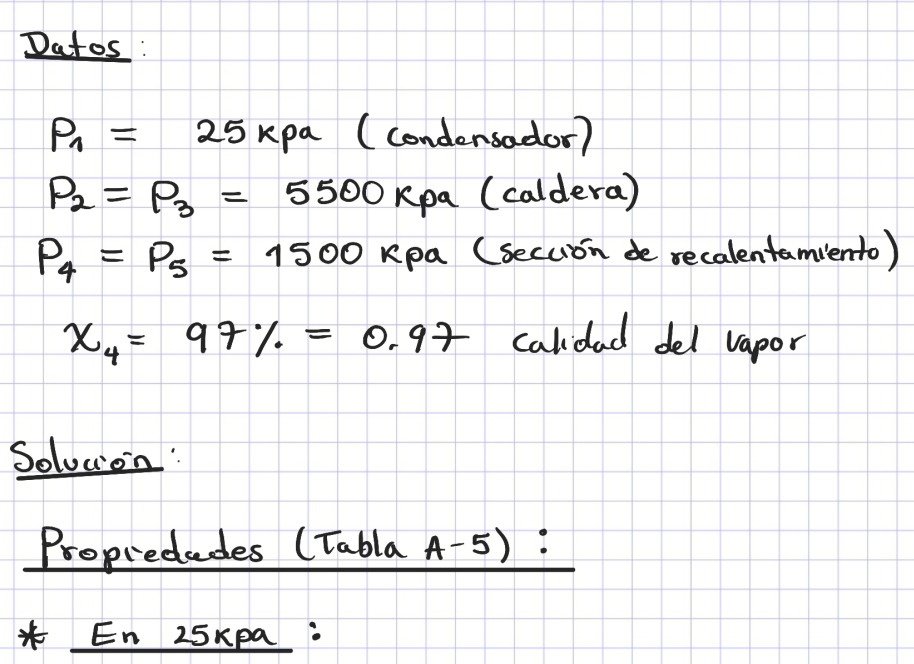 Datos:
P₁ = 25 Kpa (condensador)
P₂ = P₃ = 5500 Kpa (caldera)
P₄ = P₅ = 1500 Kpa (sección de recalentamiento)
X₄ = 97% = 0.97 calidad del vapor
Solución:
Propiedades (Tabla A-5):
* En 25Kpa: